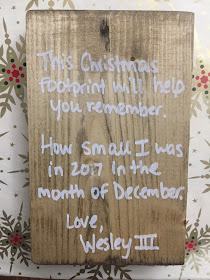 This Christmas
footprint will help
you remember.
How small I was
in 2017 in the
month of December.
Love,
Wesley III